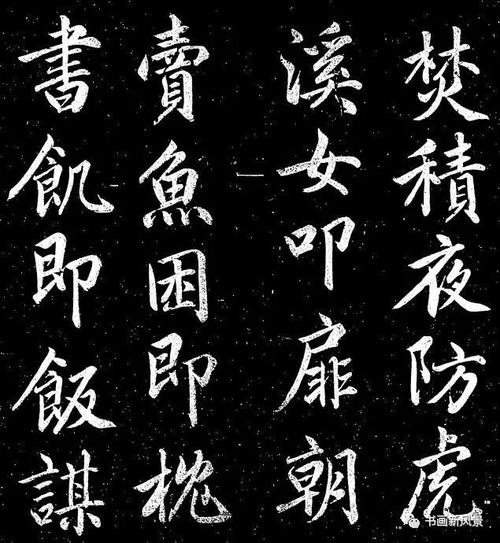 焚積夜防虎
溪女叩扉朝
賣魚困即枕
書飢即飯謀
书画新风景